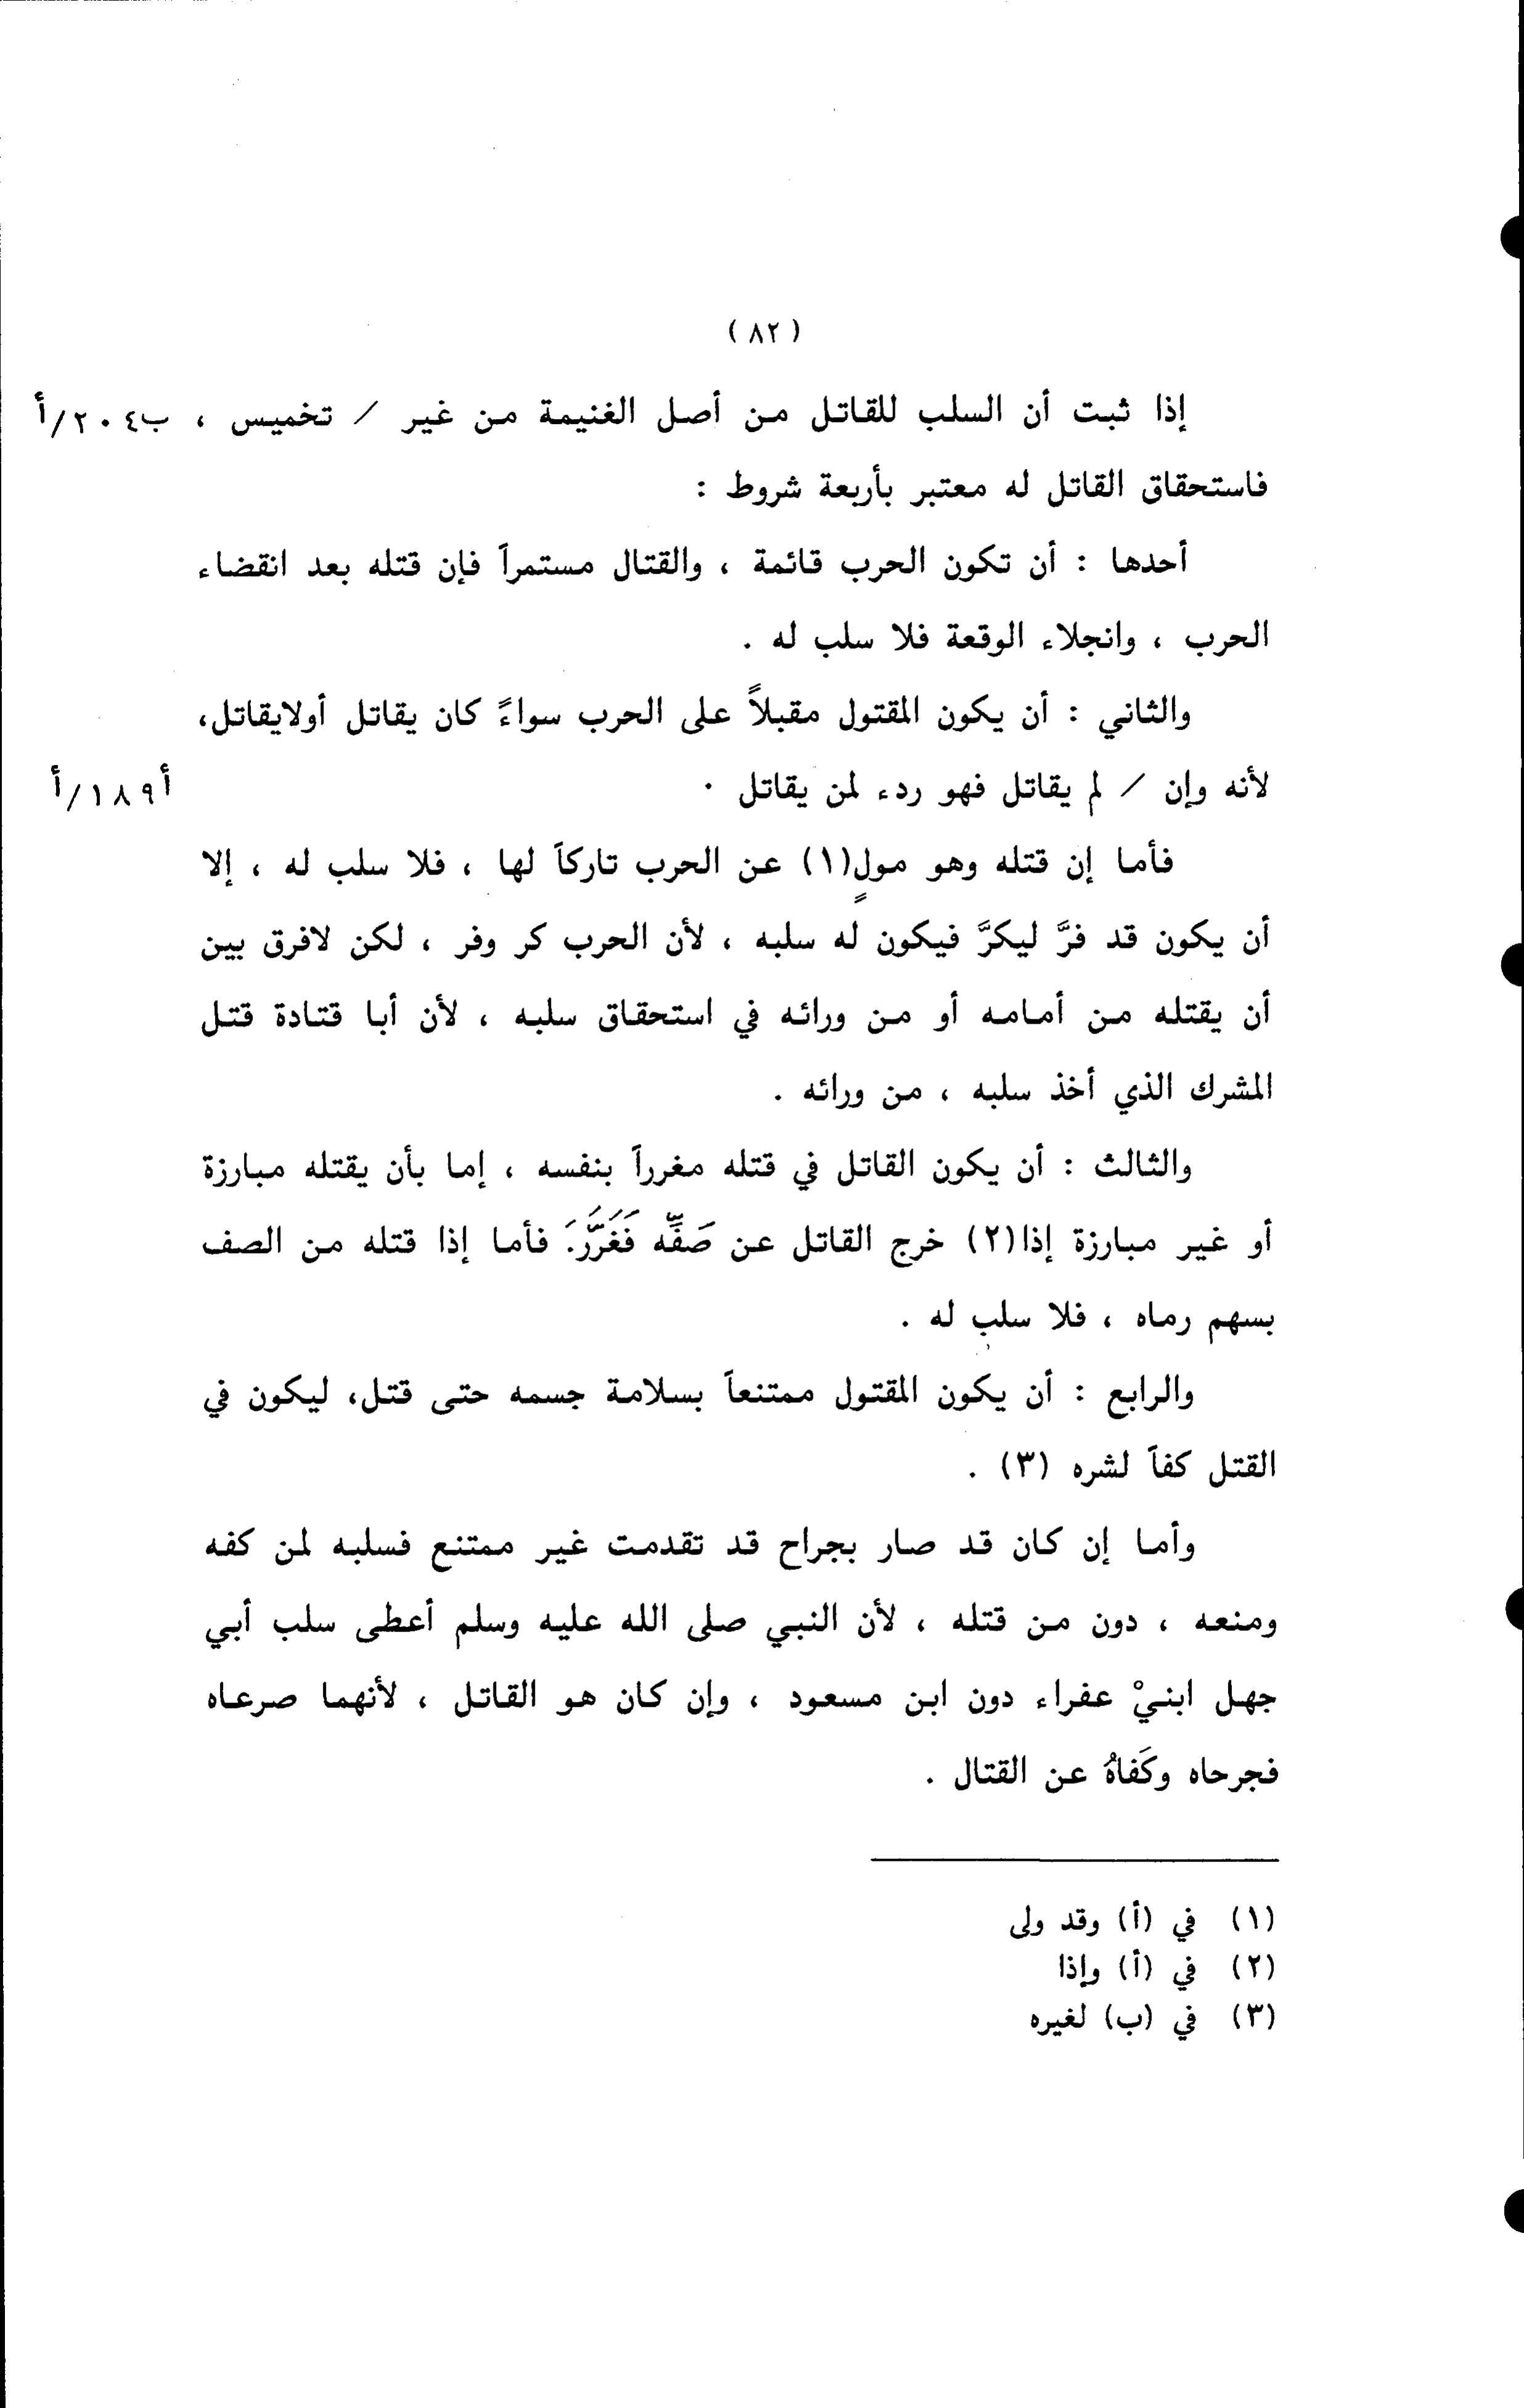 ( ٨٢ )
إذا ثبت أن السلب للقاتل من أصل الغنيمة من غير / تخميس ، ب٢٠٤/أ
فاستحقاق القاتل له معتبر بأربعة شروط :
أحدها : أن تكون الحرب قائمة ، والقتال مستمراً فإن قتله بعد انقضاء
الحرب ، وانجلاء الوقعة فلا سلب له .
والثاني : أن يكون المقتول مقبلاً على الحرب سواءً كان يقاتل أولايقاتل،
لأنه وإن / لم يقاتل فهو ردء لمن يقاتل . أ١٨٩/أ
فأما إن قتله وهو مولٍ(١) عن الحرب تاركاً لها ، فلا سلب له ، إلا
أن يكون قد فرَّ ليكرَّ فيكون له سلبه ، لأن الحرب كر وفر ، لكن لافرق بين
أن يقتله من أمامه أو من ورائه في استحقاق سلبه ، لأن أبا قتادة قتل
المشرك الذي أخذ سلبه ، من ورائه .
والثالث : أن يكون القاتل في قتله مغرراً بنفسه ، إما بأن يقتله مبارزة
أو غير مبارزة إذا(٢) خرج القاتل عن صَفِّه فَغَرَّرَ. فأما إذا قتله من الصف
بسهم رماه ، فلا سلب له .
والرابع : أن يكون المقتول ممتنعاً بسلامة جسمه حتى قتل، ليكون في
القتل كفاً لشره (٣) .
وأما إن كان قد صار بجراح قد تقدمت غير ممتنع فسلبه لمن كفه
ومنعه ، دون من قتله ، لأن النبي صلى الله عليه وسلم أعطى سلب أبي
جهل ابنيْ عفراء دون ابن مسعود ، وإن كان هو القاتل ، لأنهما صرعاه
فجرحاه وكَفاهُ عن القتال .
(١) في (أ) وقد ولى
(٢) في (أ) وإذا
(٣) في (ب) لغيره